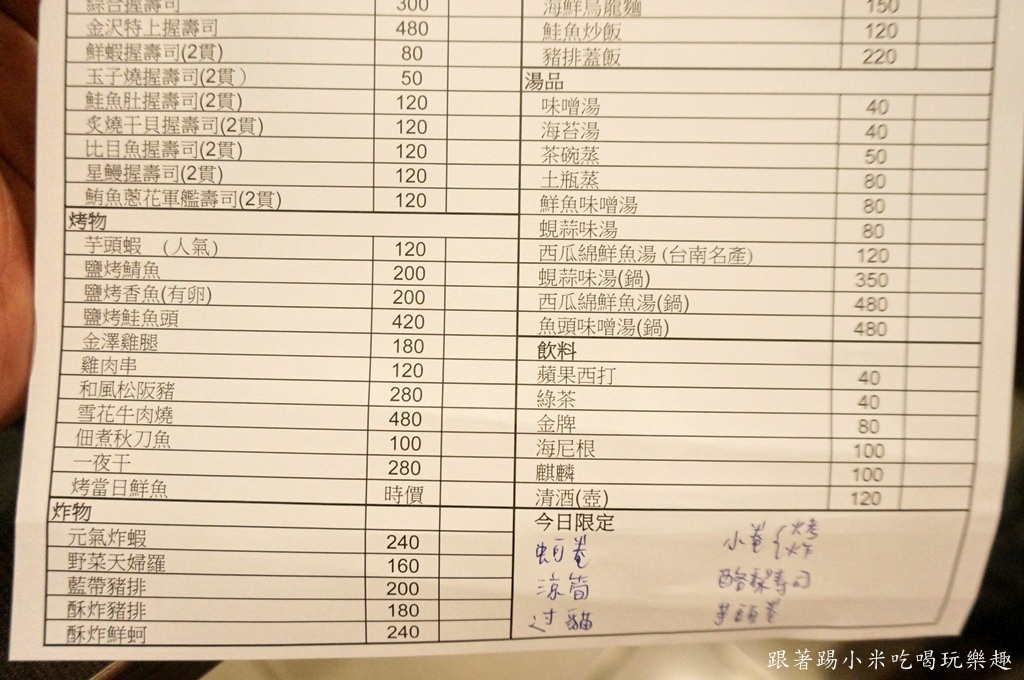 綜合握壽司 300
金沢特上握壽司 480
鮮蝦握壽司(2貫) 80
玉子燒握壽司(2貫) 50
鮭魚肚握壽司(2貫) 120
炙燒干貝握壽司(2貫) 120
比目魚握壽司(2貫) 120
星鰻握壽司(2貫) 120
鮪魚蔥花軍艦壽司(2貫) 120
烤物
芋頭蝦 (人氣) 120
鹽烤鯖魚 200
鹽烤香魚(有卵) 200
鹽烤鮭魚頭 420
金澤雞腿 180
雞肉串 120
和風松阪豬 280
雪花牛肉燒 480
佃煮秋刀魚 100
一夜干 280
烤當日鮮魚 時價
炸物
元氣炸蝦 240
野菜天婦羅 160
藍帶豬排 200
酥炸豬排 180
酥炸鮮蚵 240
海鮮烏龍麵 150
鮭魚炒飯 120
豬排蓋飯 220
湯品
味噌湯 40
海苔湯 40
茶碗蒸 50
土瓶蒸 80
鮮魚味噌湯 80
蜆蒜味湯 80
西瓜綿鮮魚湯(台南名產) 120
蜆蒜味湯(鍋) 350
西瓜綿鮮魚湯(鍋) 480
魚頭味噌湯(鍋) 480
飲料
蘋果西打 40
綠茶 40
金牌 80
海尼根 100
麒麟 100
清酒(壺) 120
今日限定
蚵卷 小卷{烤 炸
涼筍 酪梨壽司
过貓 芋頭卷
跟著踢小米吃喝玩樂趣